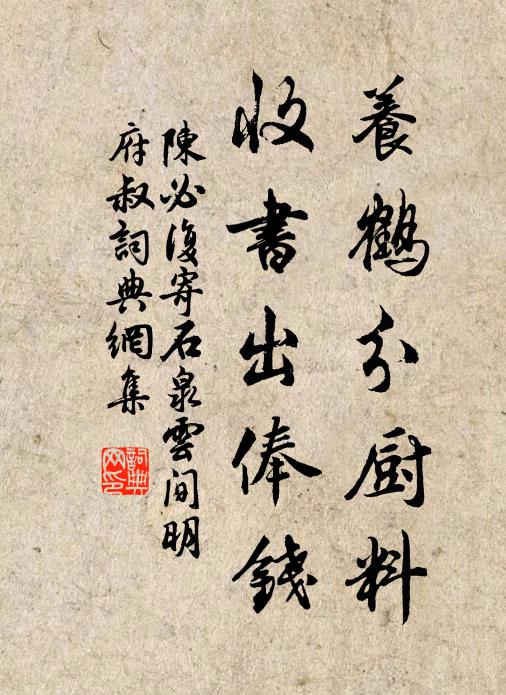 養鶴分厨料
收書出俸錢
陳必復寄石泉雲間明
府叔詞典網集
詞典網印